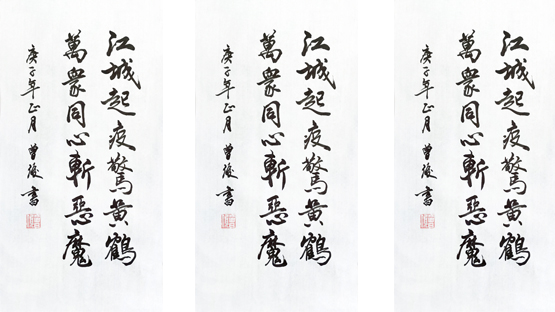 江城起疫驚黄鶴
萬衆同心斬惡魔
庚子年正月 曾 書
江城起疫驚黄鶴
萬衆同心斬惡魔
庚子年正月 曾 書
江城起疫驚黄鶴
萬衆同心斬惡魔
庚子年正月 曾 書